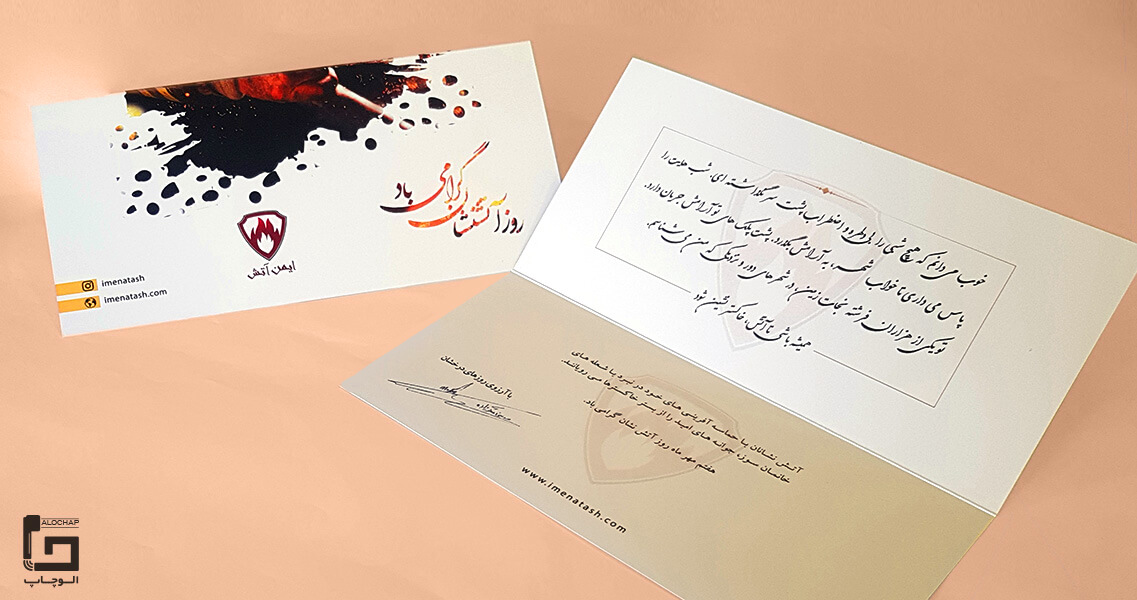 روز آتشنشان گرامی باد
ایمن آتش
imenatash
imenatash.com
خوب می دانم که هیچ شبی را بی دلهره و اضطراب پشت سر نگذاشته ای، شب هایت را
پاس می داری تا خواب شهر، به آرامش بگذرد. پشت پلک های تو آرامش جریان دارد.
تو یکی از هزاران فرشته نجات زمین، در شهرهای دور و نزدیکی که من می شناسم.
همیشه باشی تا آتش، خاکستر نشین شود
آتش نشانان با حماسه آفرینی های خود در نبرد با شعله های
خانمان سوز، جوانه های امید را از بستر خاکسترها می رویانند.
هفتم مهر ماه روز آتش نشان گرامی باد.
با آرزوی روزهای درخشان
www.imenatash.com
ALOCHAP
الوچاپ